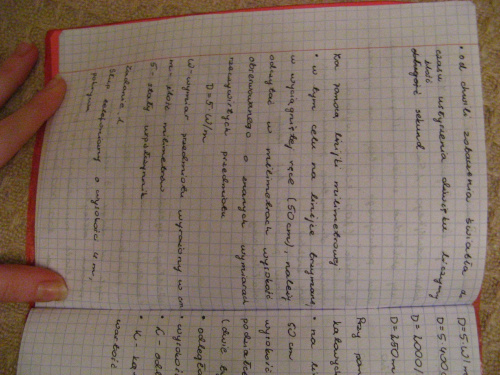 • od chwili zobaczenia światła a,
czasu usłyszenia dźwięku liczymy
ilość
sekund
Za pomocą linijki milimetrowej
• w tym celu na linijce trzymanej
w wyciągniętej ręce (50cm), należy
odczytać w milimetrach wysokość
obserwowanego o znanych wymiarach
rzeczywistych przedmiotu
D=5·W/m
W-wymiar przedmiotu wyrażony w cm
m- ilość milimetrów
5- stały współczynnik
Zadanie 1.
Słup o wysokości 4 m,
D=5·W/m
D=5·400
D=2000/
D=250m
Przy pom
• na li
50 cm
wysokość
podziałce
(dwie
• odległo
• wysokość
• L- odl
• K- ką
wartość